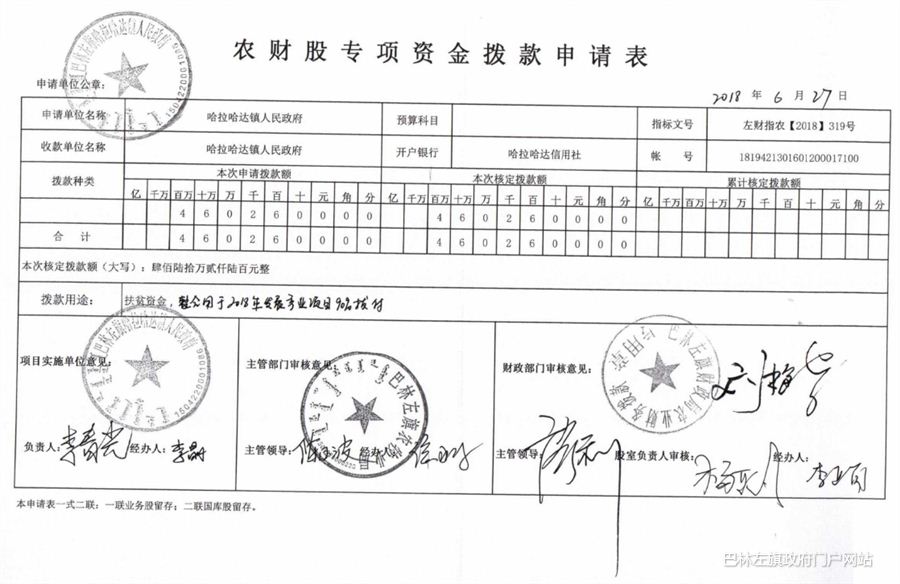 农财股专项资金拨款申请表
申请单位公章：
2018 年 6 月 27 日
申请单位名称 哈拉哈达镇人民政府 预算科目 指标文号 左财指农【2018】319号
收款单位名称 哈拉哈达镇人民政府 开户银行 哈拉哈达信用社 帐 号 1819421301601200017100
拨款种类 本次申请拨款额 本次核定拨款额 累计核定拨款额
亿 千万 百万 十万 万 千 百 十 元 角 分 亿 千万 百万 十万 万 千 百 十 元 角 分 亿 千万 百万 十万 万 千 百 十 元 角 分
4 6 0 2 6 0 0 0 0 4 6 0 2 6 0 0 0 0
合 计 4 6 0 2 6 0 0 0 0 4 6 0 2 6 0 0 0 0
本次核定拨款额（大写）：肆佰陆拾万贰仟陆百元整
拨款用途： 扶贫资金，用于2018年发展产业项目90%拨付
项目实施单位意见： 主管部门审核意见： 财政部门审核意见：
负责人： 经办人： 主管领导： 经办人： 主管领导： 股室负责人审核： 经办人：
本申请表一式二联：一联业务股留存；二联国库股留存。
巴林左旗哈拉哈达镇人民政府
巴林左旗哈拉哈达镇人民政府
巴林左旗农牧业局
巴林左旗财政局农业财务拨款专用章
巴林左旗政府门户网站